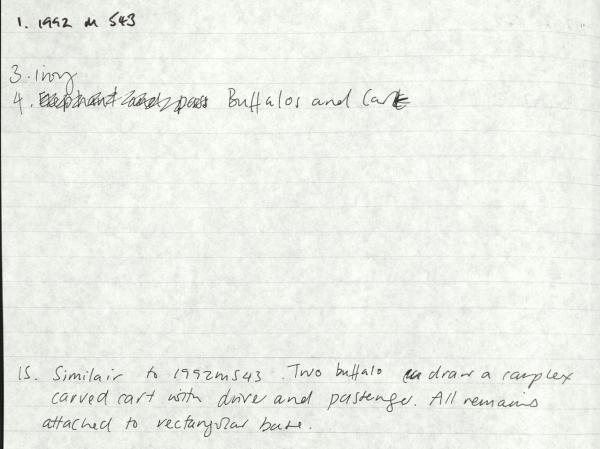 1. 1992 m 543
3. ivory
4. Buffalos and Cart
15. Similair to 1992m543. Two buffalo draw a complex
carved cart with driver and passenger. All remains
attached to rectangular base.